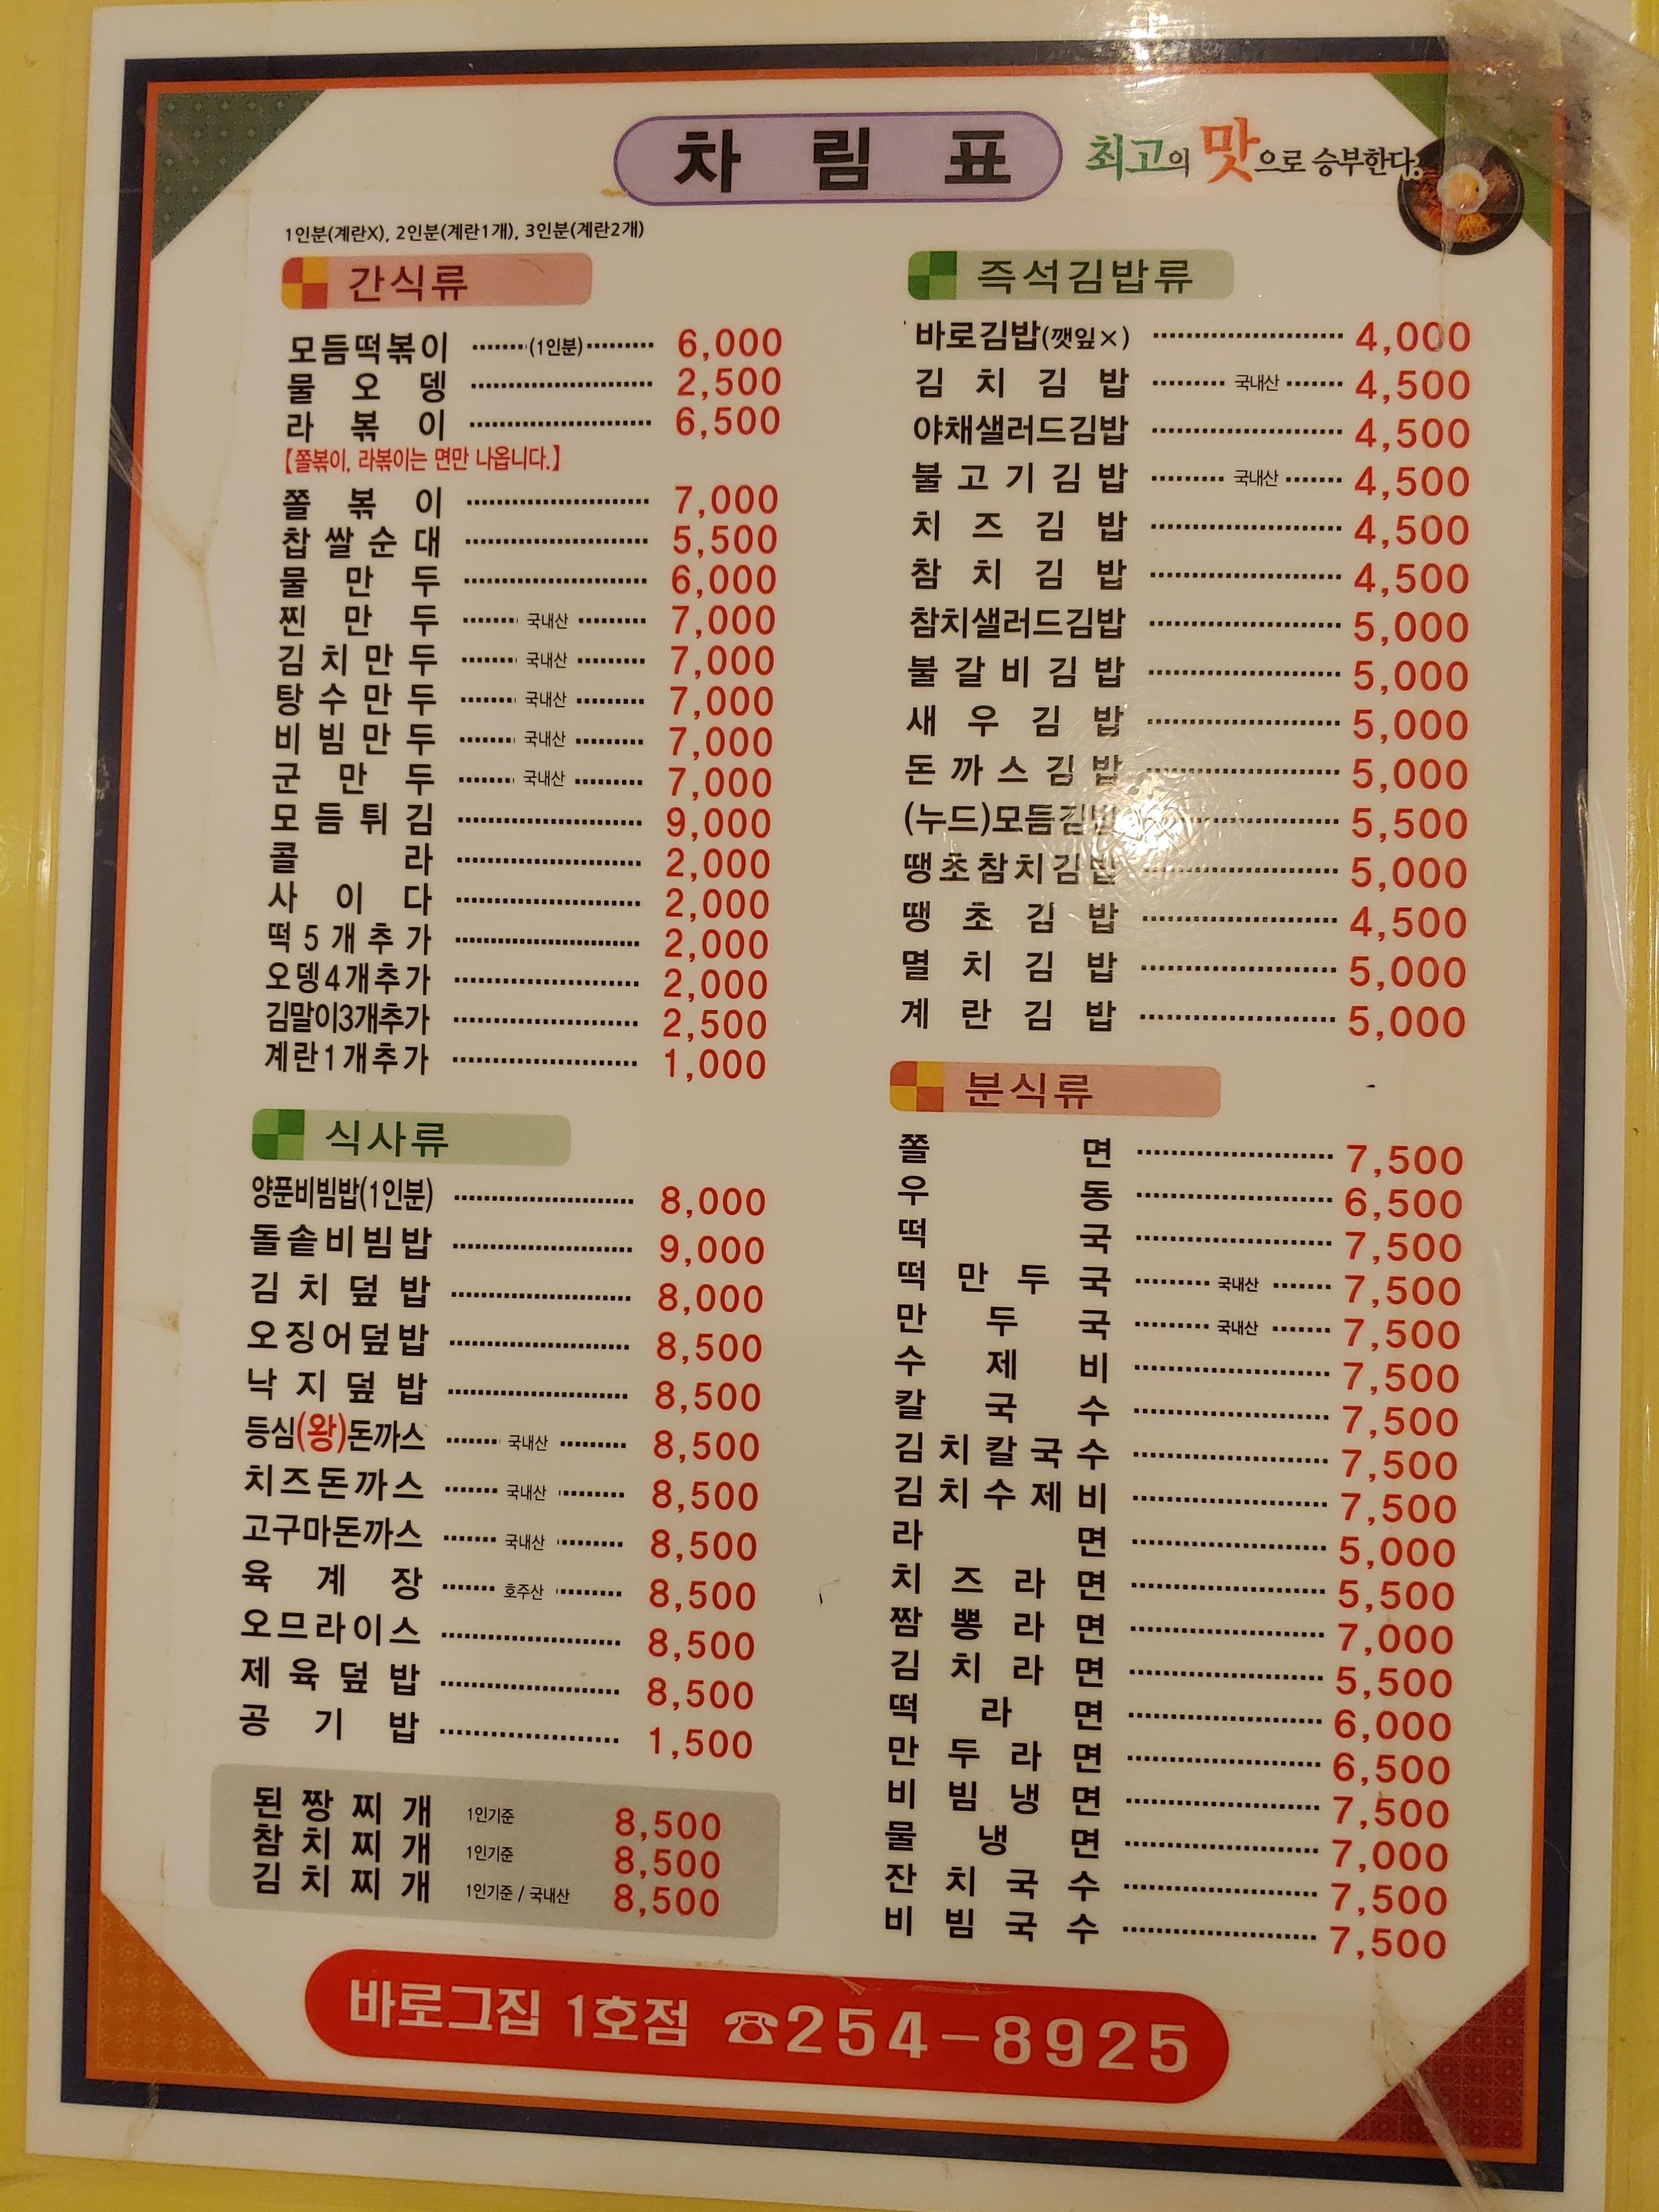 차림표
최고의 맛으로 승부한다.
1인분(계란X), 2인분(계란1개), 3인분(계란2개)
간식류
모듬떡볶이 (1인분) 6,000
물오뎅 2,500
라볶이 6,500
【쫄볶이, 라볶이는 면만 나옵니다.】
쫄볶이 7,000
찹쌀순대 5,500
물만두 6,000
찐만두 국내산 7,000
김치만두 국내산 7,000
탕수만두 국내산 7,000
비빔만두 국내산 7,000
군만두 국내산 7,000
모듬튀김 9,000
콜라 2,000
사이다 2,000
떡5개추가 2,000
오뎅4개추가 2,000
김말이3개추가 2,500
계란1개추가 1,000
식사류
양푼비빔밥(1인분) 8,000
돌솥비빔밥 9,000
김치덮밥 8,000
오징어덮밥 8,500
낙지덮밥 8,500
등심(왕)돈까스 국내산 8,500
치즈돈까스 국내산 8,500
고구마돈까스 국내산 8,500
육계장 호주산 8,500
오므라이스 8,500
제육덮밥 8,500
공기밥 1,500
된짱찌개 1인기준 8,500
참치찌개 1인기준 8,500
김치찌개 1인기준 / 국내산 8,500
즉석김밥류
바로김밥(깻잎×) 4,000
김치김밥 국내산 4,500
야채샐러드김밥 4,500
불고기김밥 국내산 4,500
치즈김밥 4,500
참치김밥 4,500
참치샐러드김밥 5,000
불갈비김밥 5,000
새우김밥 5,000
돈까스김밥 5,000
(누드)모듬김밥 5,500
땡초참치김밥 5,000
땡초김밥 4,500
멸치김밥 5,000
계란김밥 5,000
분식류
쫄면 7,500
우동 6,500
떡국 7,500
떡만두국 국내산 7,500
만두국 국내산 7,500
수제비 7,500
칼국수 7,500
김치칼국수 7,500
김치수제비 7,500
라면 5,000
치즈라면 5,500
짬뽕라면 7,000
김치라면 5,500
떡라면 6,000
만두라면 6,500
비빔냉면 7,500
물냉면 7,000
잔치국수 7,500
비빔국수 7,500
바로그집 1호점 ☎254-8925